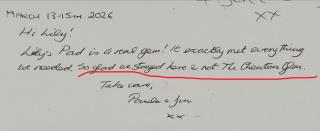 MARCH 13-15TH 2026
xx
Hi Lily!
Lily's Pad is a real gem! It exactly met everything
we needed. So glad we stayed here & not The Chewton Glen.
Take care,
& Jon
xx